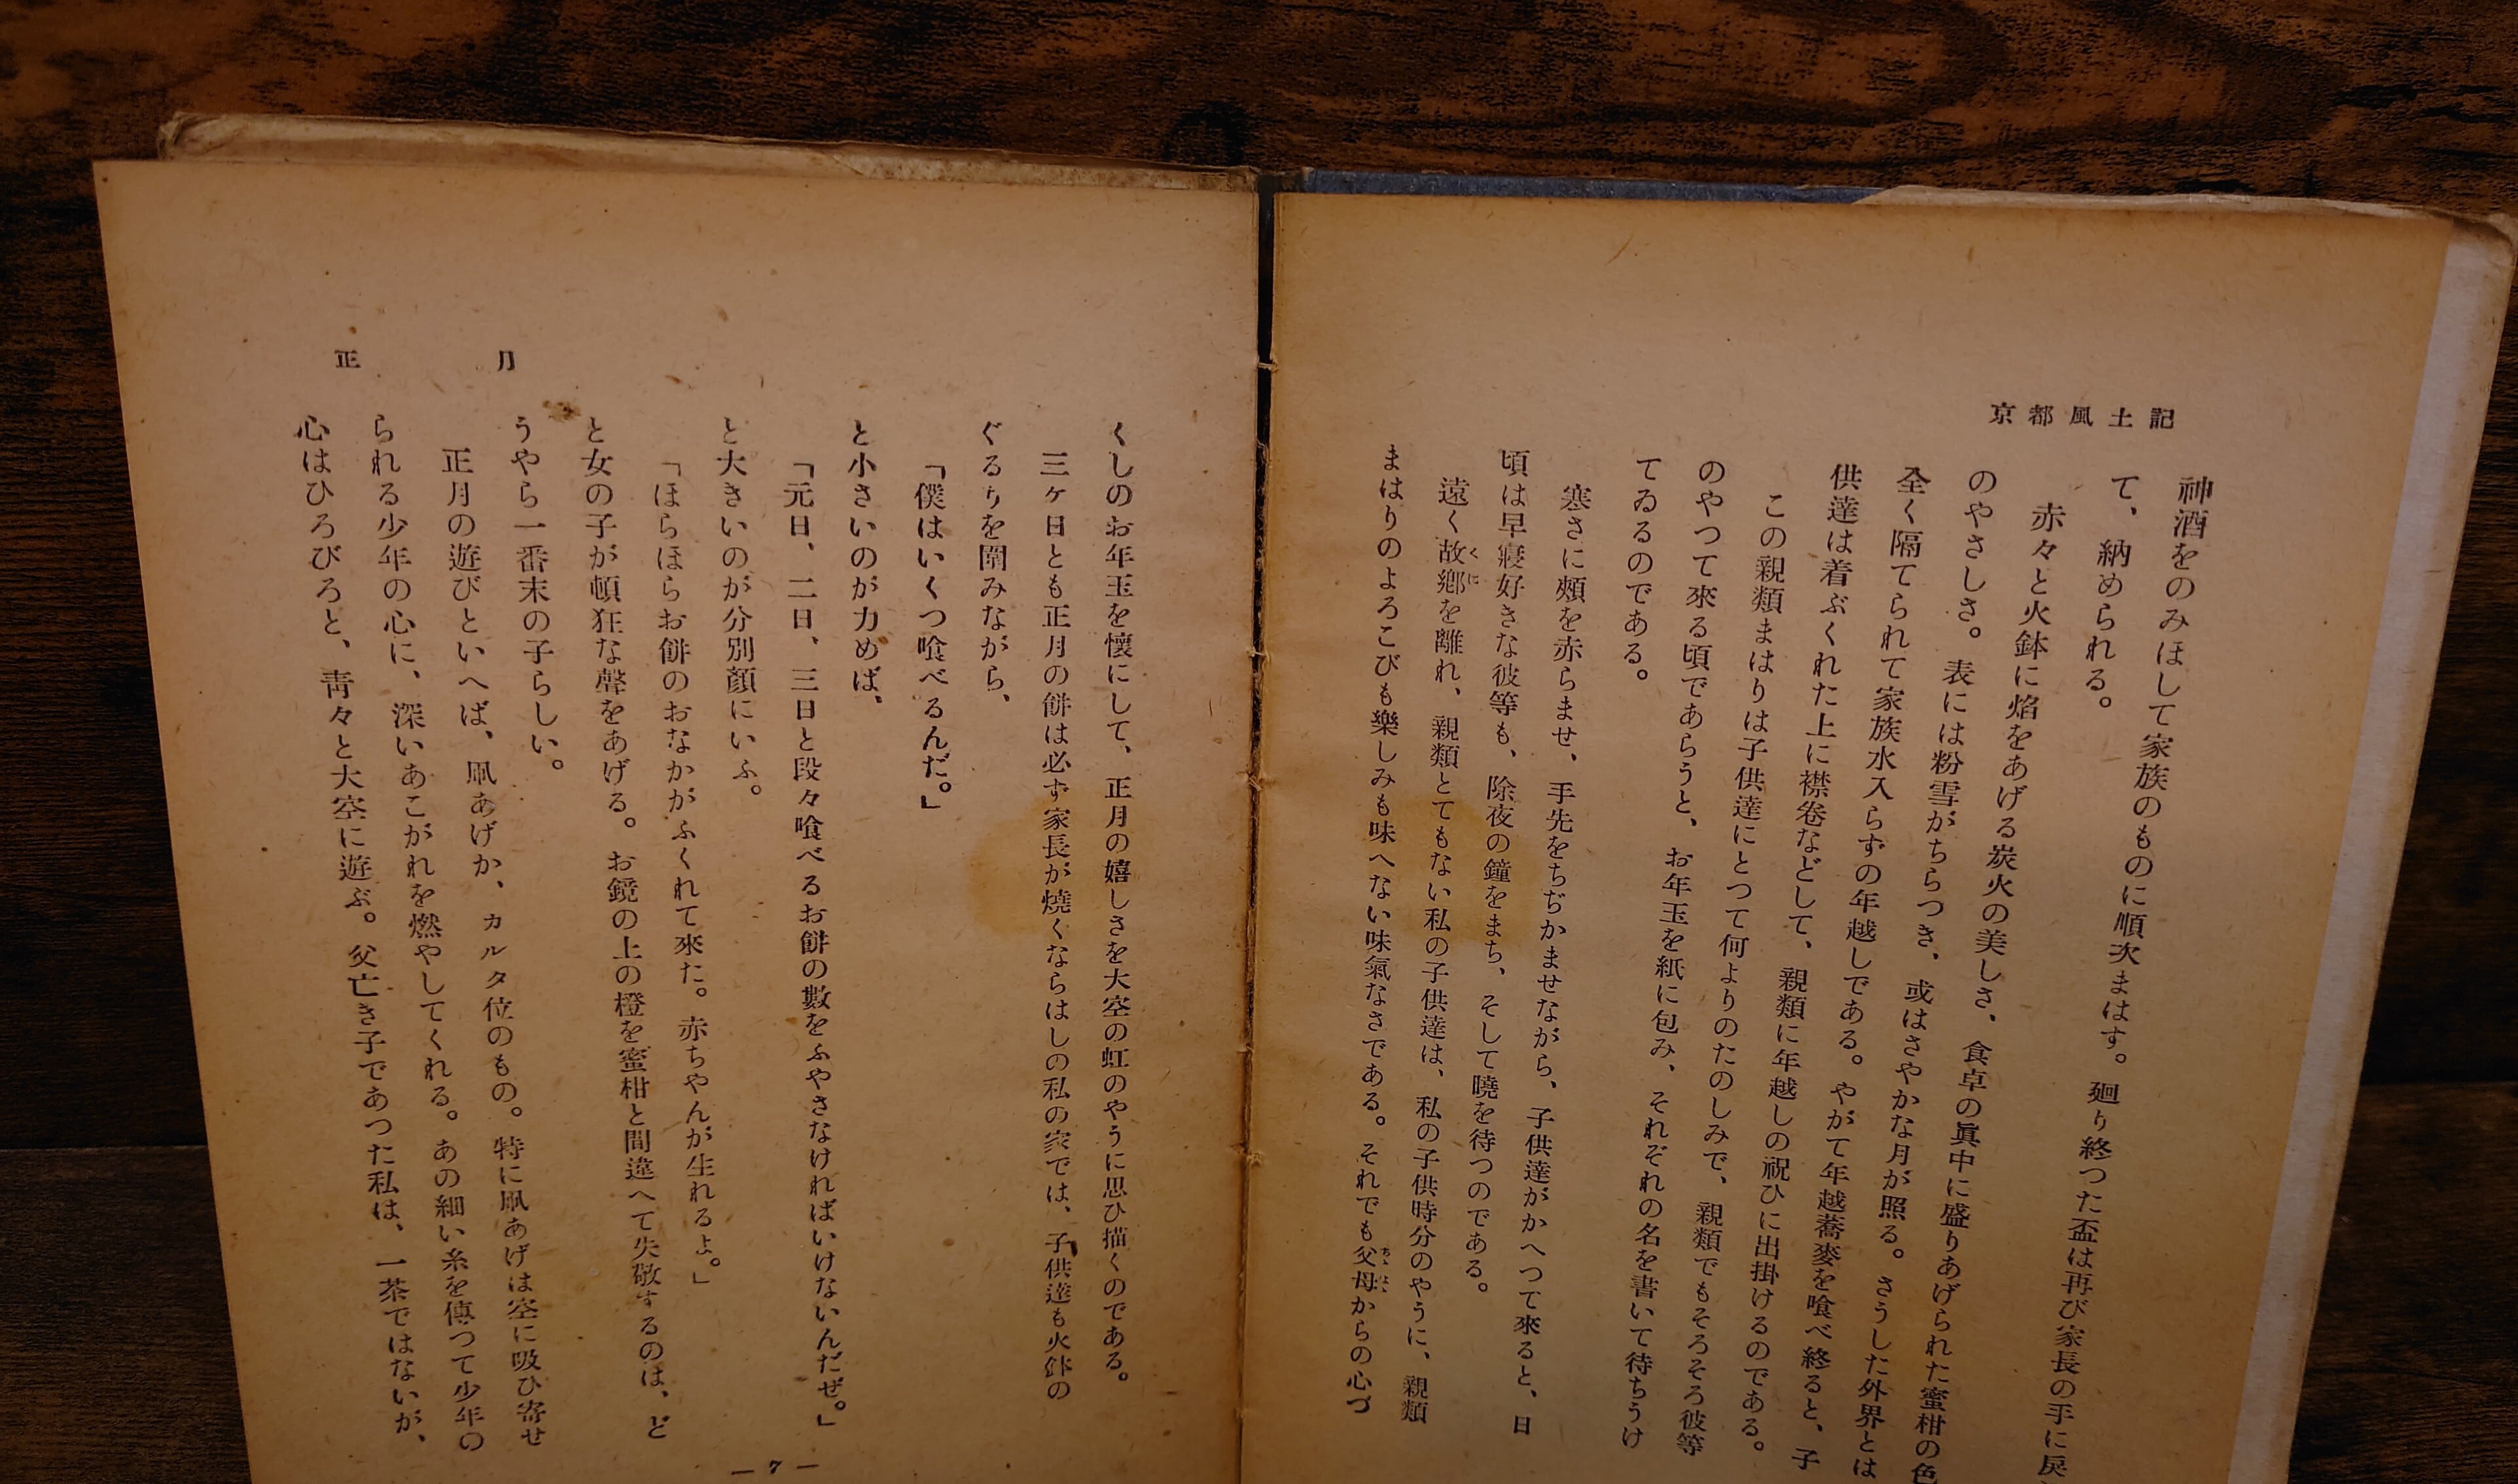 京都風土記
神酒をのみほして家族のものに順次まはす。廻り終つた盃は再び家長の手に戻
て、納められる。
赤々と火鉢に焰をあげる炭火の美しさ、食卓の眞中に盛りあげられた蜜柑の色
のやさしさ。表には粉雪がちらつき、或はさやかな月が照る。さうした外界とは
全く隔てられて家族水入らずの年越しである。やがて年越蕎麥を喰べ終ると、子
供達は着ぶくれた上に襟卷などして、親類に年越しの祝ひに出掛けるのである。
この親類まはりは子供達にとつて何よりのたのしみで、親類でもそろそろ彼等
のやつて來る頃であらうと、お年玉を紙に包み、それぞれの名を書いて待ちうけ
てゐるのである。
寒さに頰を赤らませ、手先をちぢかませながら、子供達がかへつて來ると、日
頃は早寢好きな彼等も、除夜の鐘をまち、そして曉を待つのである。
遠く故鄕を離れ、親類とてもない私の子供達は、私の子供時分のやうに、親類
まはりのよろこびも樂しみも味へない味氣なさである。それでも父母からの心づ
くしのお年玉を懷にして、正月の嬉しさを大空の虹のやうに思ひ描くのである。
三ケ日とも正月の餅は必ず家長が燒くならはしの私の家では、子供達も火鉢の
ぐるりを圍みながら、
「僕はいくつ喰べるんだ。」
と小さいのが力めば、
「元日、二日、三日と段々喰べるお餅の數をふやさなければいけないんだぜ。」
と大きいのが分別顏にいふ。
「ほらほらお餅のおなかがふくれて來た。赤ちやんが生れるよ。」
と女の子が頓狂な聲をあげる。お鏡の上の橙を蜜柑と間違へて失敬するのは、ど
うやら一番末の子らしい。
正月の遊びといへば、凧あげか、カルタ位のもの。特に凧あげは空に吸ひ寄せ
られる少年の心に、深いあこがれを燃やしてくれる。あの細い糸を傳つて少年の
心はひろびろと、靑々と大空に遊ぶ。父亡き子であつた私は、一茶ではないが、
正月
—7—